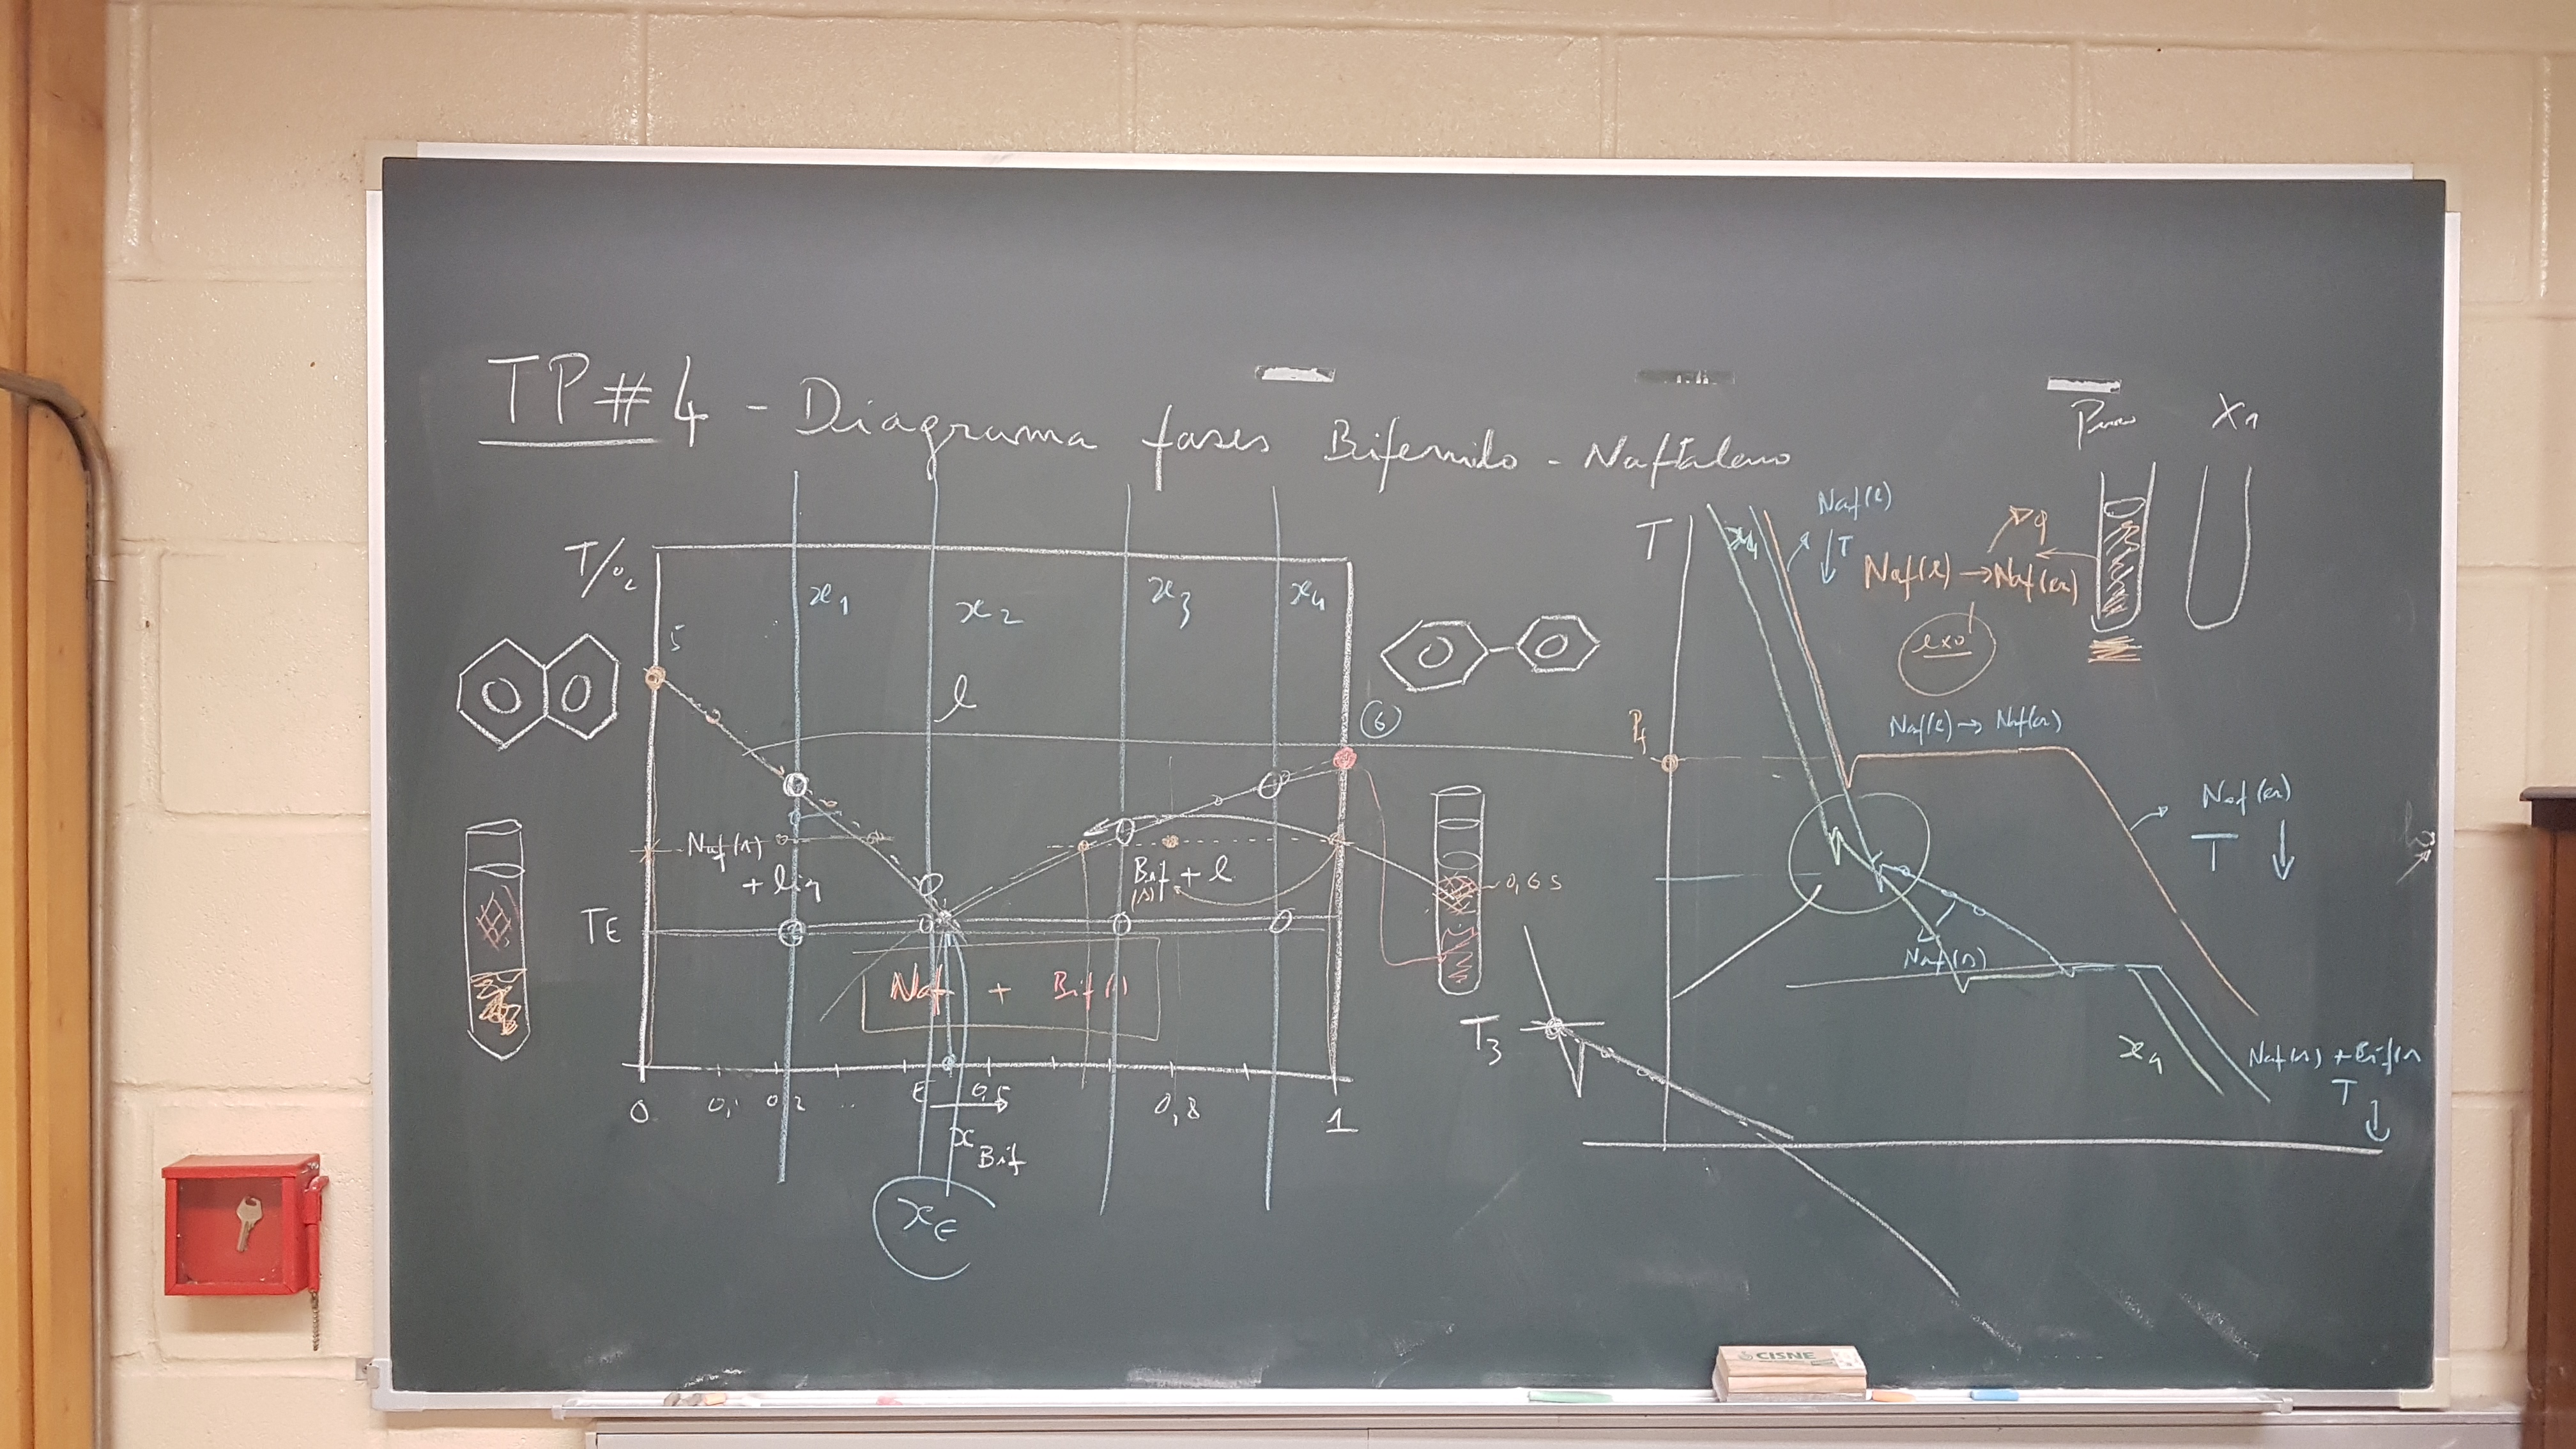 TP#4 - Diagrama fases Bifenilo - Naftaleno
T/ºC
5
x1
x2
x3
x4
l
6
Naf(s)
+ liq
Bif + l
(s)
TE
Naf + Bif(s)
0
0,2
..
E
0,5
0,8
1
xBif
xE
0,65
T3
T
x4
Naf(l)
↓T
q
Naf(l) → Naf(s)
exo
Puro
X1
Naf(l) → Naf(s)
Naf(s)
T ↓
Naf(s)
x4
Naf(s) + Bif(s)
T ↓
CISNE